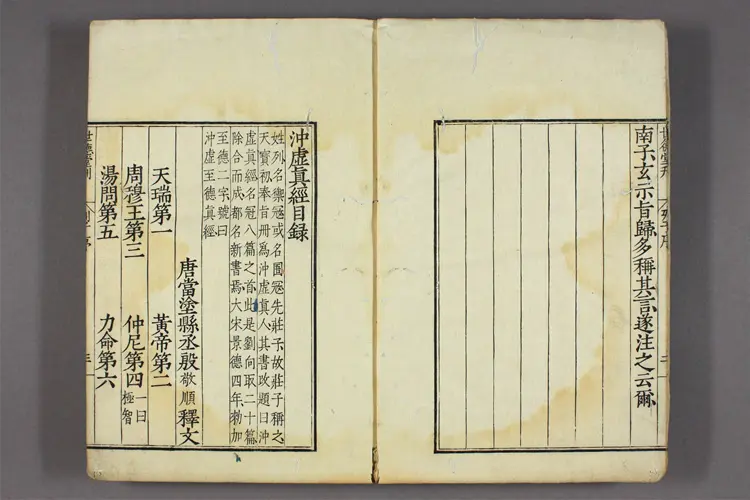 南子玄示旨歸多稱其言遂注之云爾
沖虛眞經目錄
姓列名禦寇或名圄寇先莊子故莊子稱之
天寶初奉旨册爲沖虛眞人其書改題曰沖
虛眞經名冠八篇之首此是劉向取二十篇
除合而成都名新書焉大宋景德四年勑加
至德二字號曰
沖虛至德眞經
唐當塗縣丞殷敬順釋文
天瑞第一 黃帝第二
周穆王第三 仲尼第四 一曰極智
湯問第五 力命第六
世德堂刊